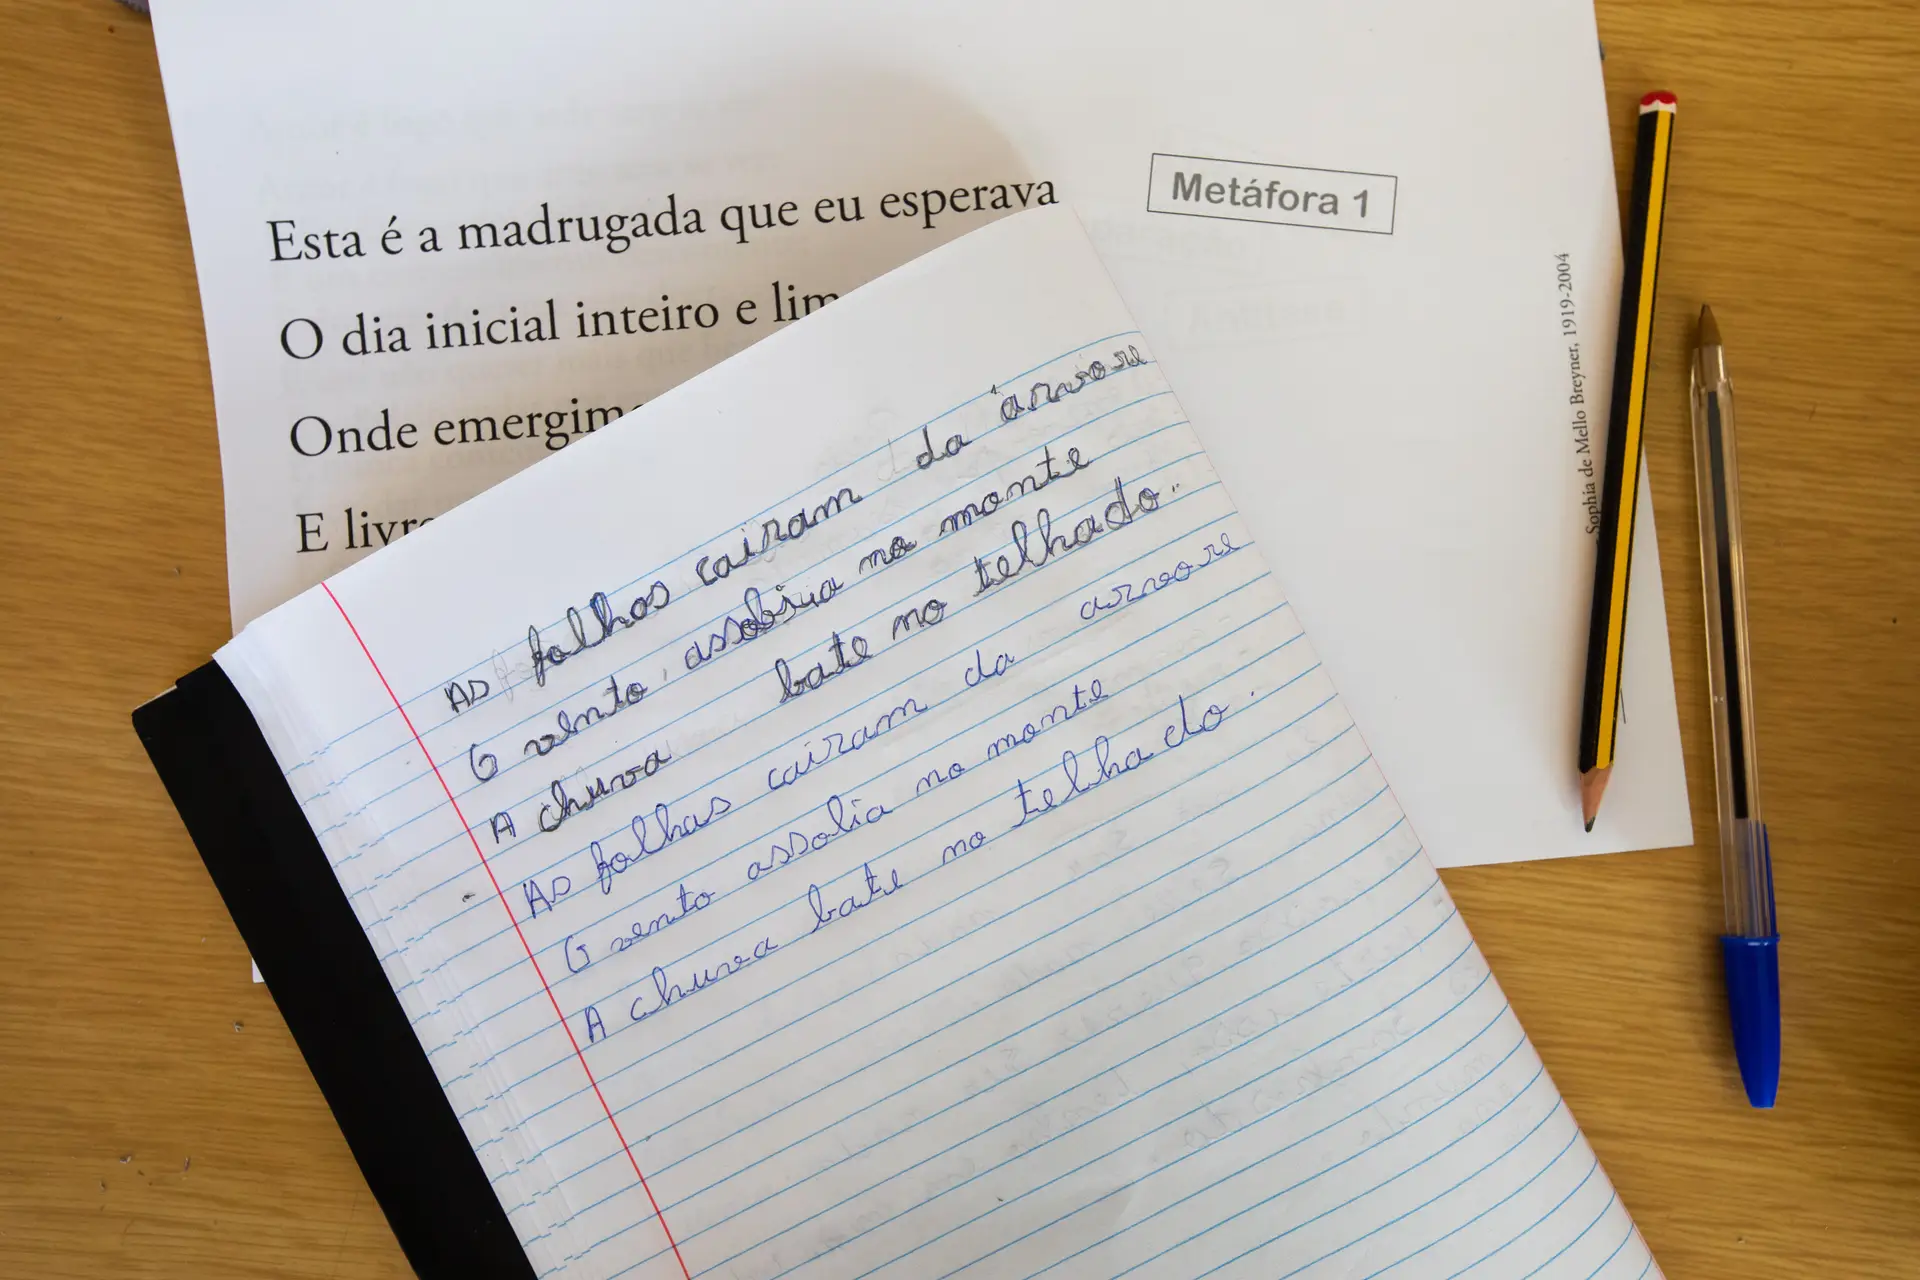 Esta é a madrugada que eu esperava
Metáfora 1
O dia inicial inteiro e lim
Onde emergim
E livre
Sophia de Mello Breyner, 1919-2004
As folhas cairam da árvore
O vento, assobia no monte
A chuva bate no telhado..
As folhas cairam da arvore
O vento assolia no monte
A chuva bate no telhado.